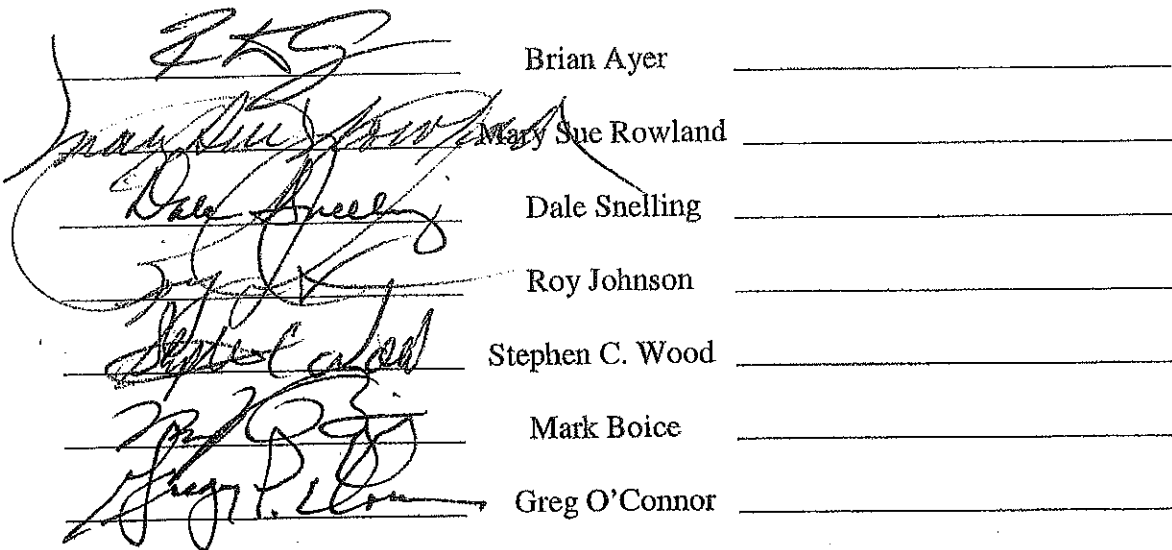 Brian Ayer
Mary Sue Rowland Mary Sue Rowland
Dale Snelling Dale Snelling
Roy Johnson
Stephen C Wood Stephen C. Wood
Mark Boice
Gregory P. O'Connor Greg O'Connor